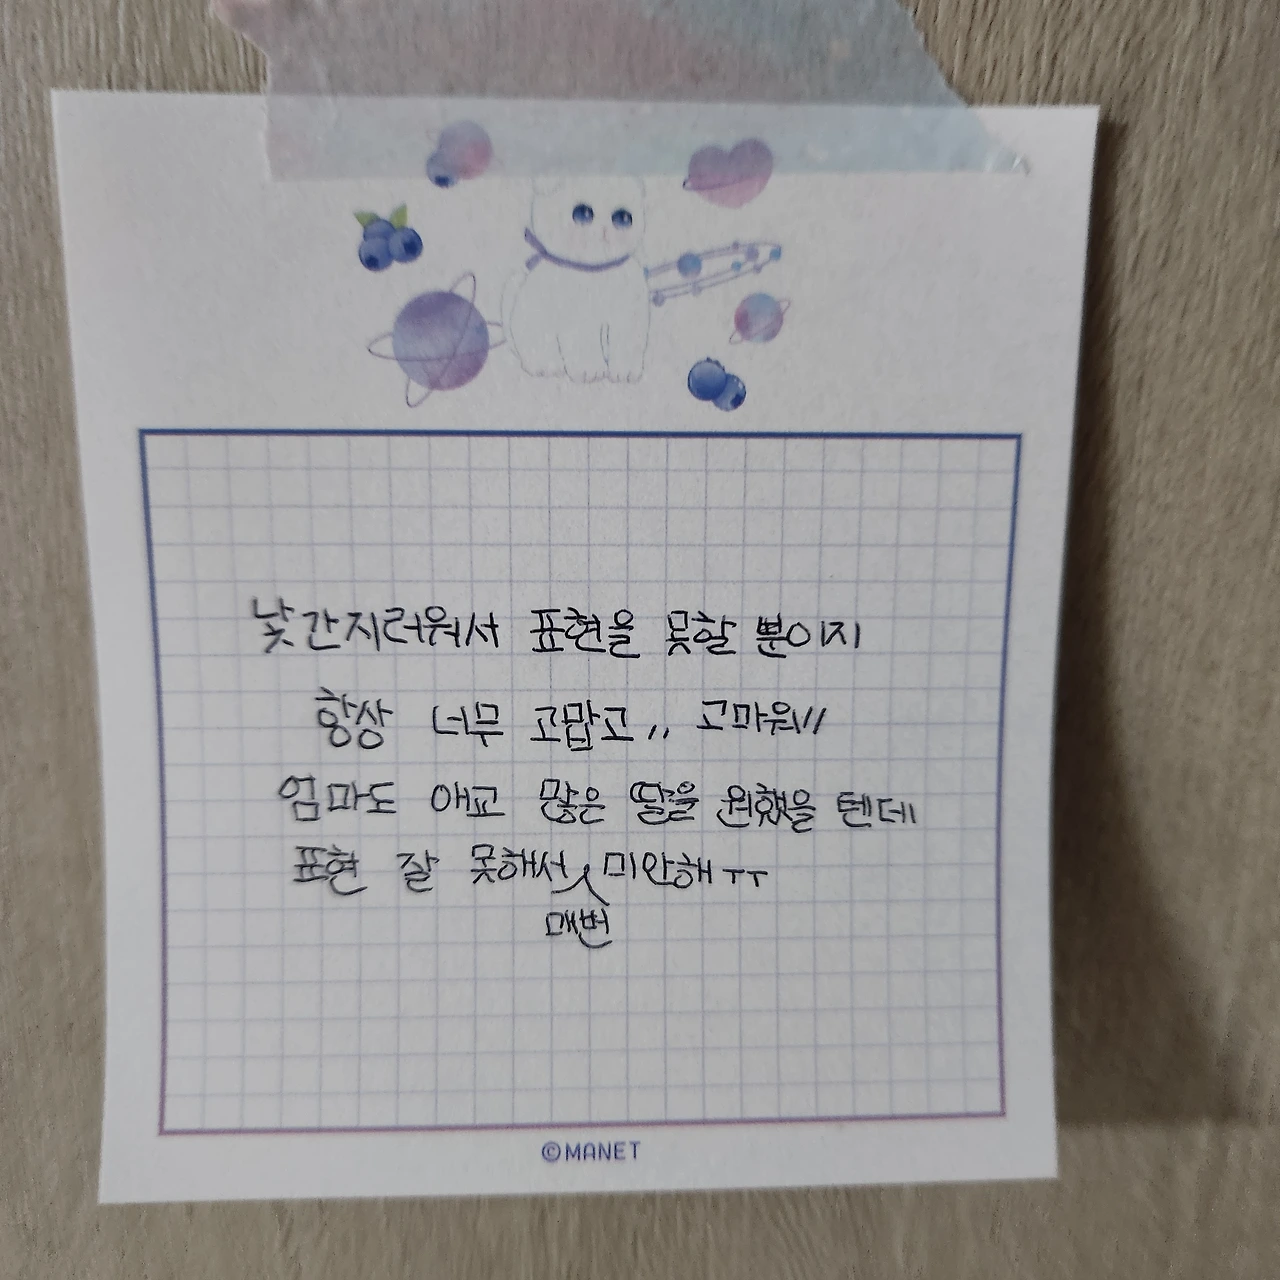 낯간지러워서 표현을 못할 뿐이지
항상 너무 고맙고,, 고마워//
엄마도 애교 많은 딸을 원했을 텐데
표현 잘 못해서 미안해ㅜㅜ
매번
©MANET